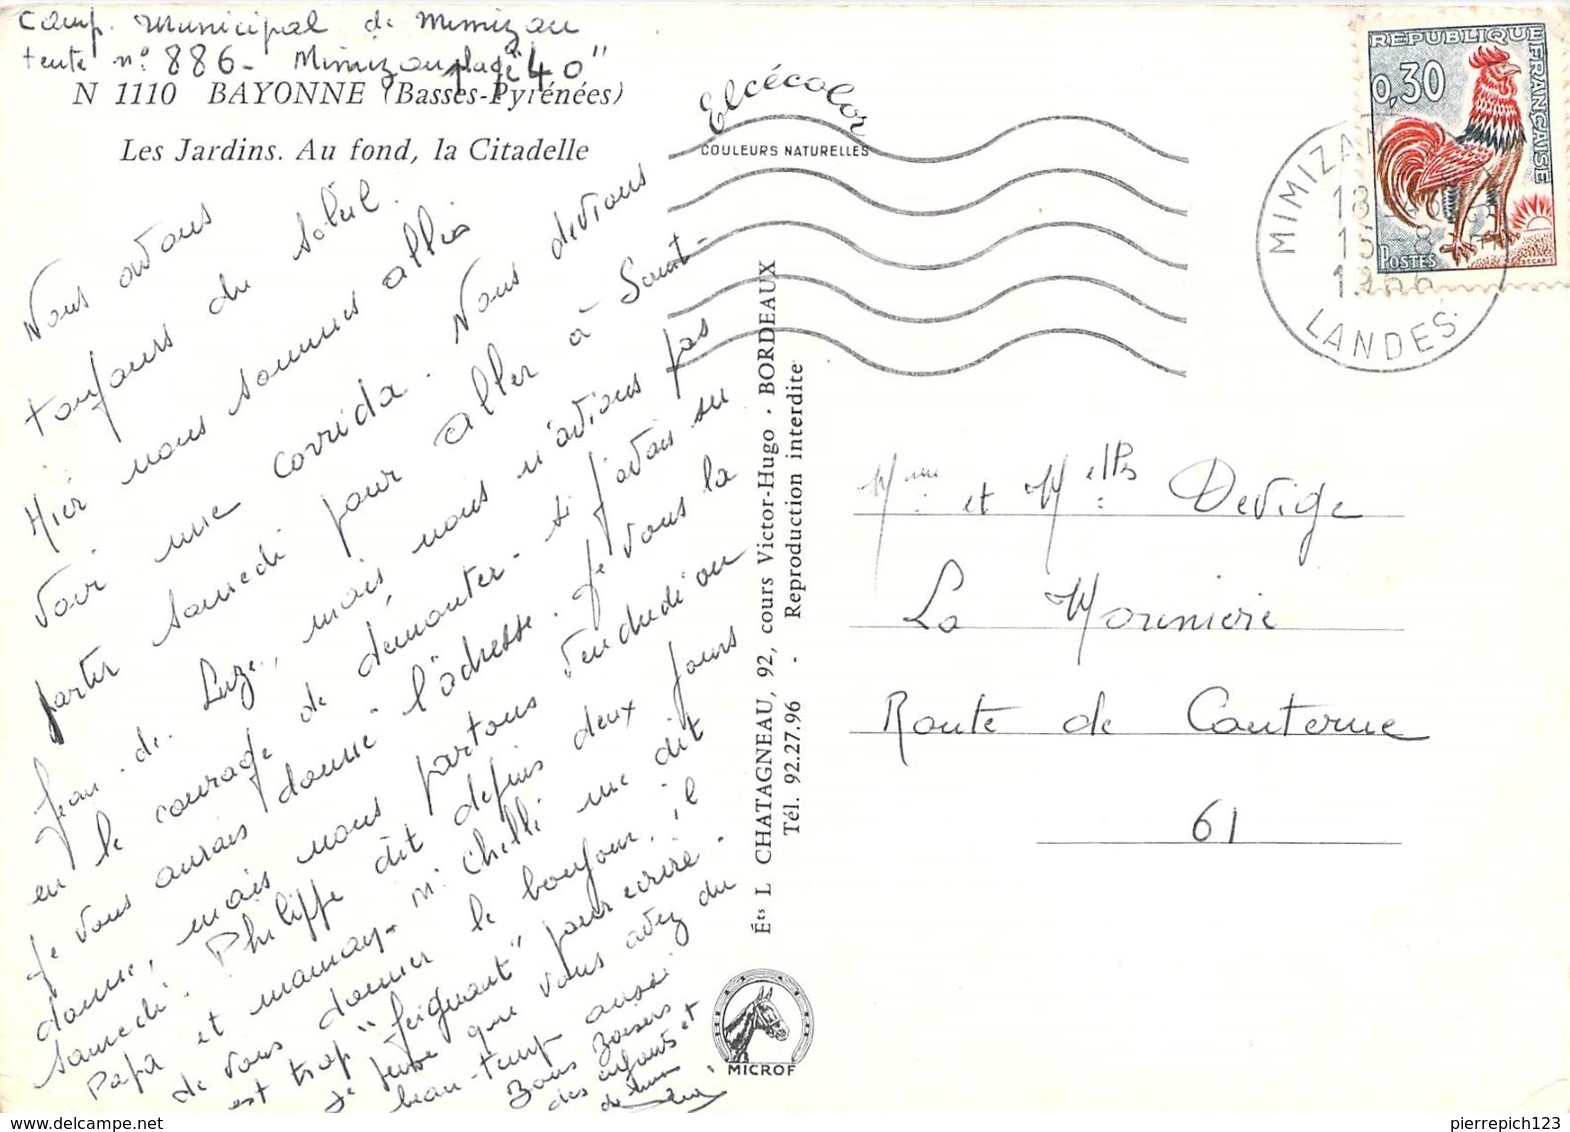 Camp. Municipal de Mimizan
tente n° 886 - Mimizan plage "40"
N 1110 BAYONNE (Basses-Pyrénées)
Les Jardins. Au fond, la Citadelle
Nous avons
toujours du soleil.
Hier nous sommes allés
voir une corrida. Nous devions
partir samedi pour aller à Saint-
Jean-de-Luz, mais nous n'avions pas
eu le courage de démonter - si j'avais su
je vous aurais donné l'adresse. Je vous la
donne, mais nous partons vendredi ou
samedi. Philippe dit depuis deux jours
Papa et maman - Mr Chelli me dit
de vous donner le bonjour, il
est trop "feignant" pour écrire.
Je pense que vous avez du
beau-temp aussi
Bons Baisers
des enfants et
de
Elcécolor
COULEURS NATURELLES
Éts L CHATAGNEAU, 92, cours Victor-Hugo - BORDEAUX
Tél. 92.27.96 - Reproduction interdite
MICROF
REPUBLIQUE FRANÇAISE
0,30
POSTES
DECARIS
MIMIZAN
18
15-8
1966
LANDES
Mme et Melles Devige
La Morinière
Route de Couterne
61
pierrepich123